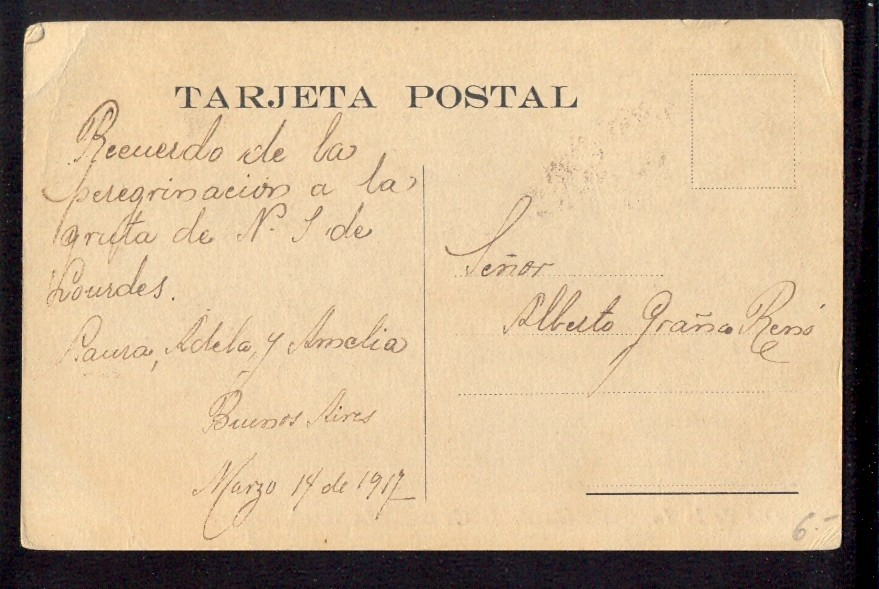 TARJETA POSTAL
Recuerdo de la
peregrinacion a la
gruta de N. S de
Lourdes.
Laura, Adela, y Amelia
Buenos Aires
Marzo 14 de 1917
Señor
Alberto Graña Renó
6.-